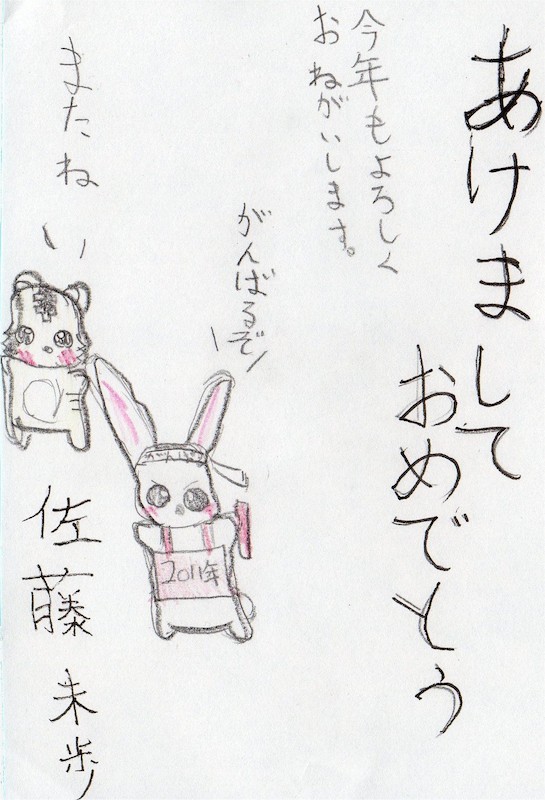 あけまして
おめでとう
今年もよろしく
おねがいします。
がんばるぞ
2011年
またね
佐藤未歩